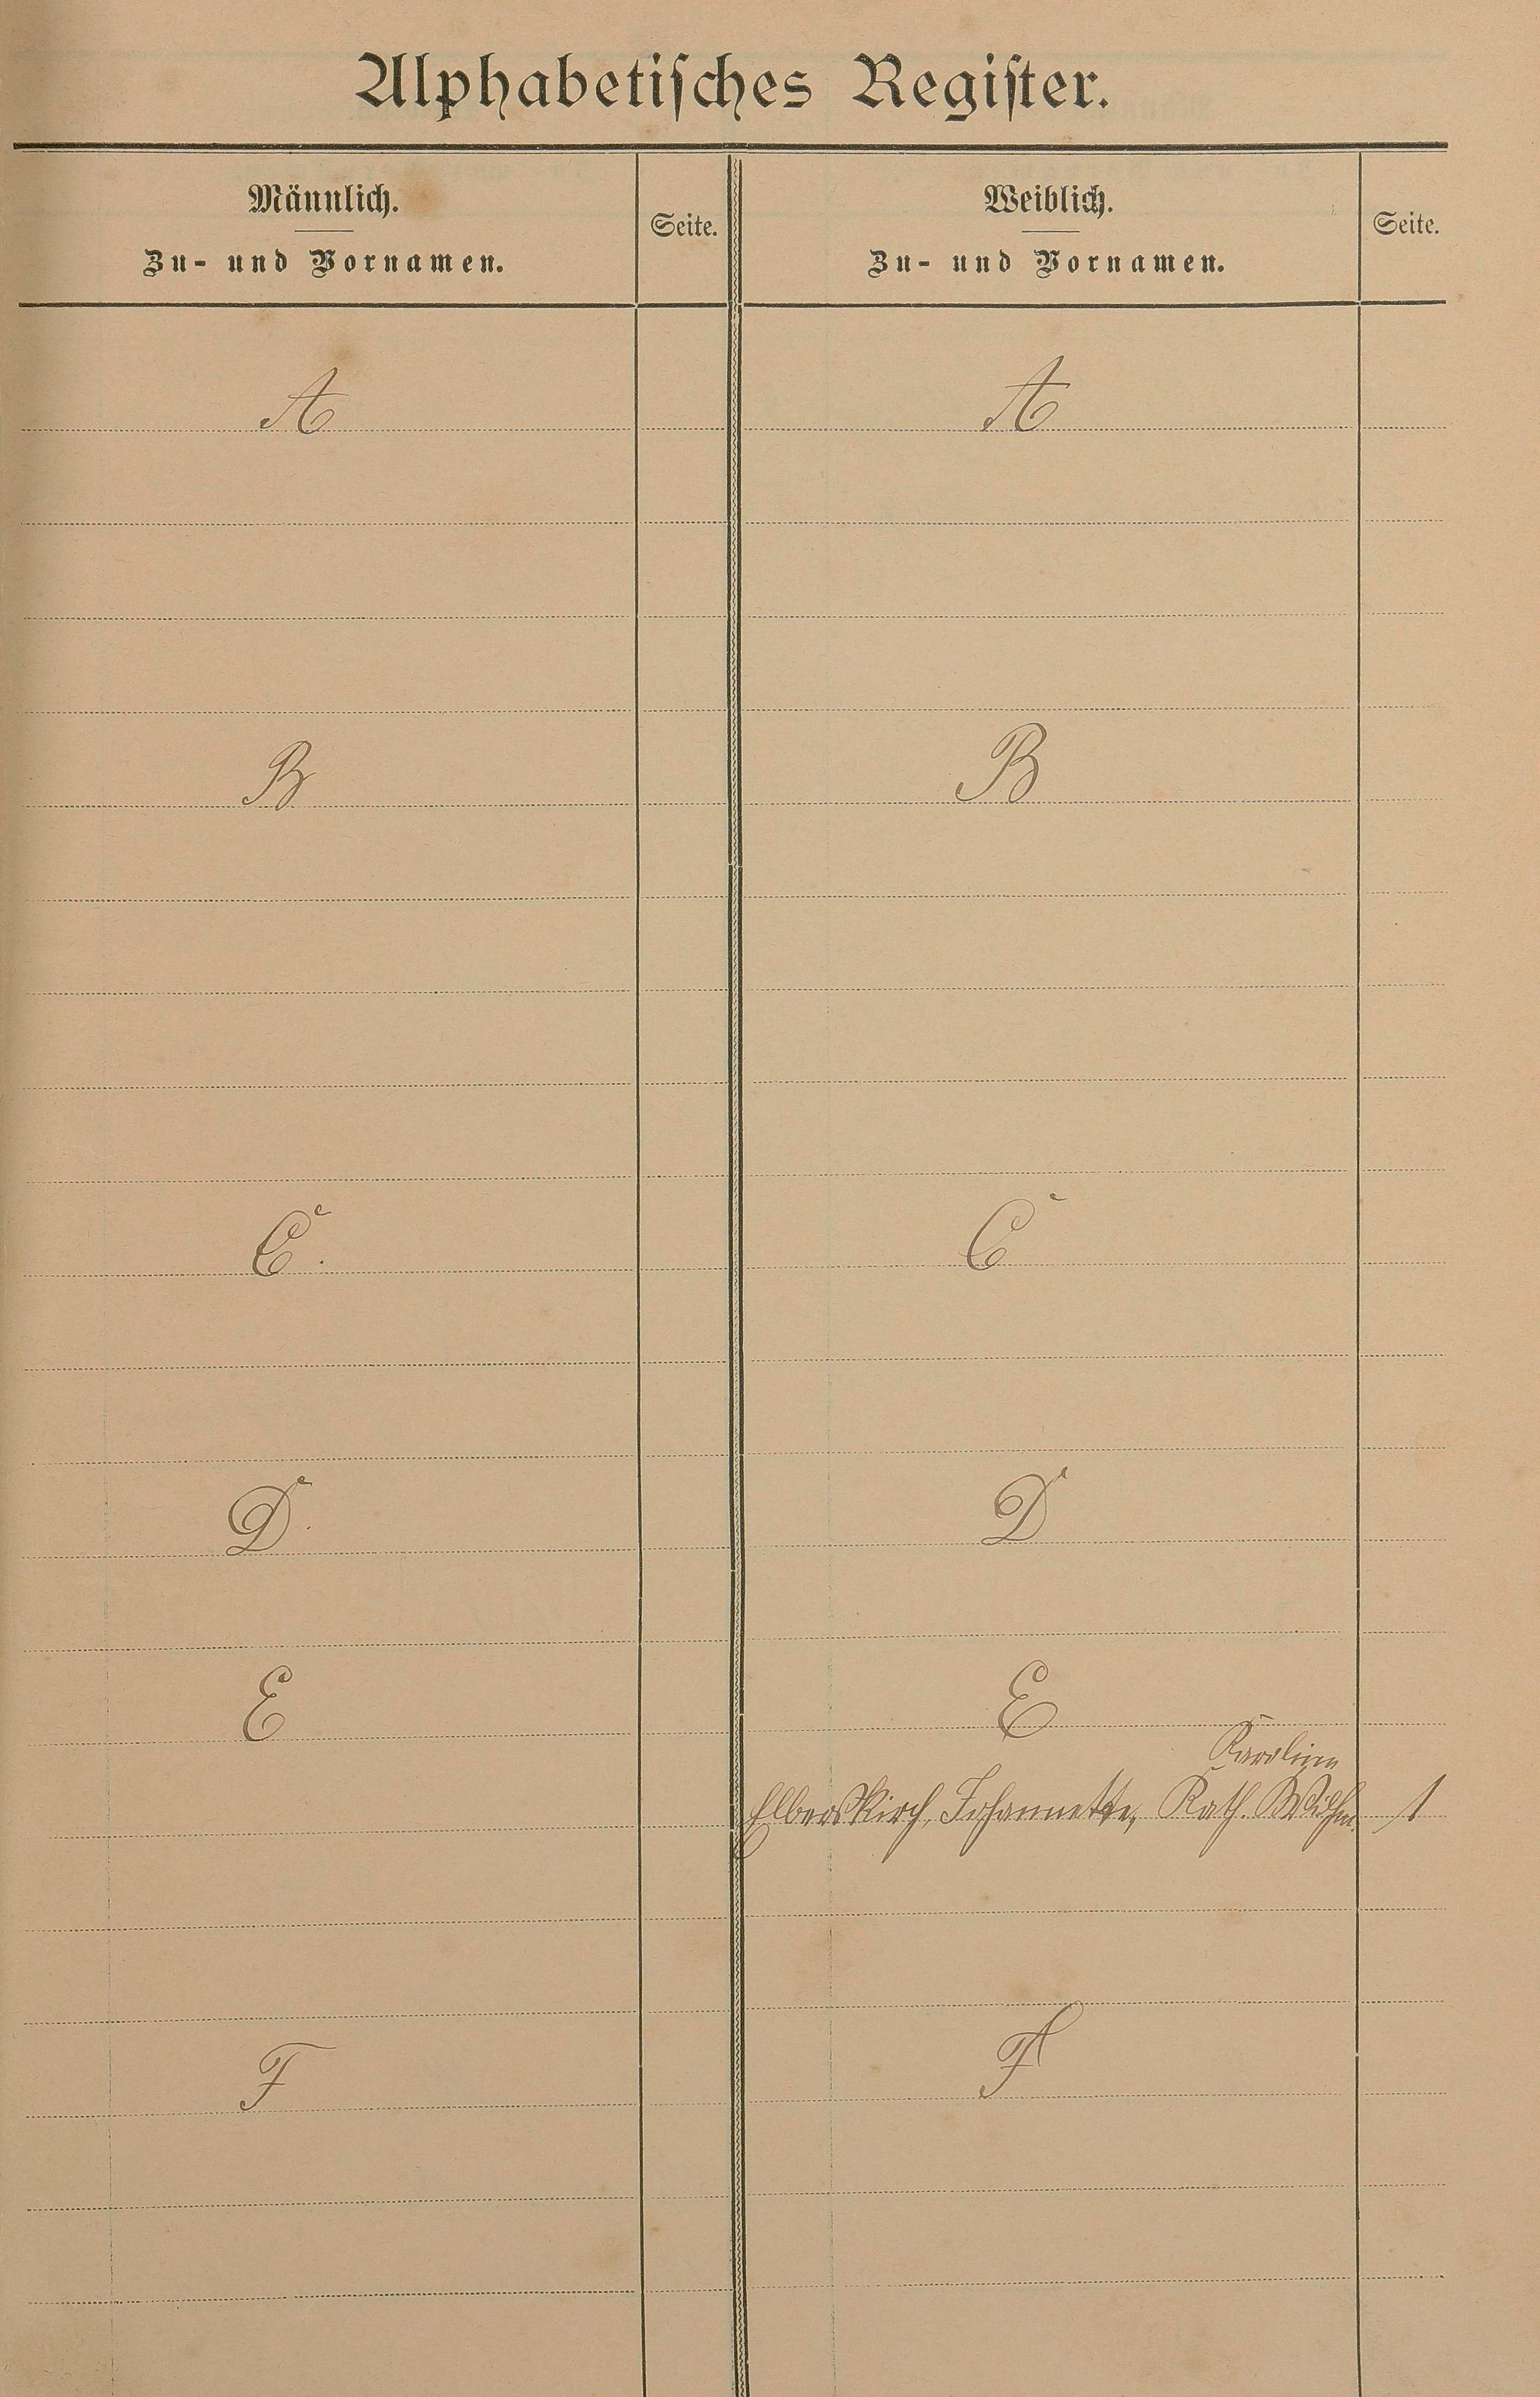 Alphabetisches Register.
Männlich.
Zu- und Vornamen.
Seite.
Weiblich.
Zu- und Vornamen.
Seite.
A
A
B
B
C.
C
D.
D
E
E
Karoline
Elberskirch, Johannette, Kath. Wilhm. 1
F
F